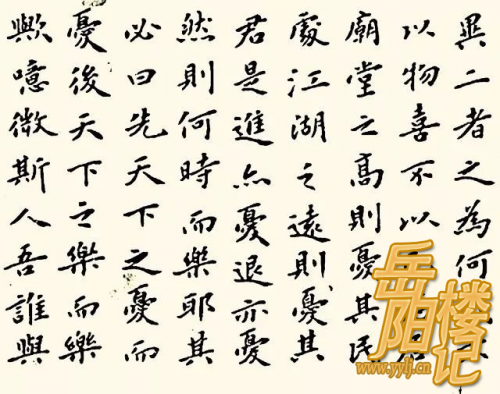 異二者之為何
以物喜不以
廟堂之高則憂其民
處江湖之遠則憂其
君是進亦憂退亦憂
然則何時而樂耶其
必曰先天下之憂而
憂後天下之樂而樂
歟噫微斯人吾誰與
岳阳楼记
www.yylj.cn